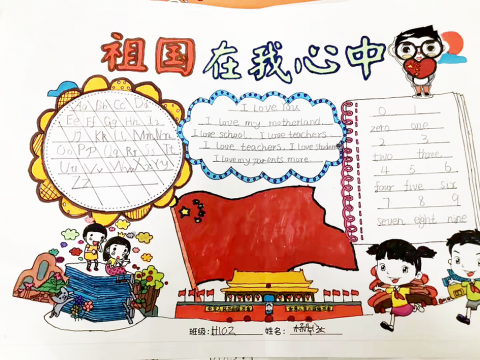 祖国在我心中
Aa Bb Cc Dd
Ee Ff Gg Hh Ii
Kk Ll Mm Nn
Oo Pp Qq Rr
I love you
I love my motherland
I love school. I love teachers
I love teachers. I love students
I love my parents more
0 1
zero one
2 3
two three
4 5 6
four five six
7 8 9
seven eight nine
班级: H102 姓名: